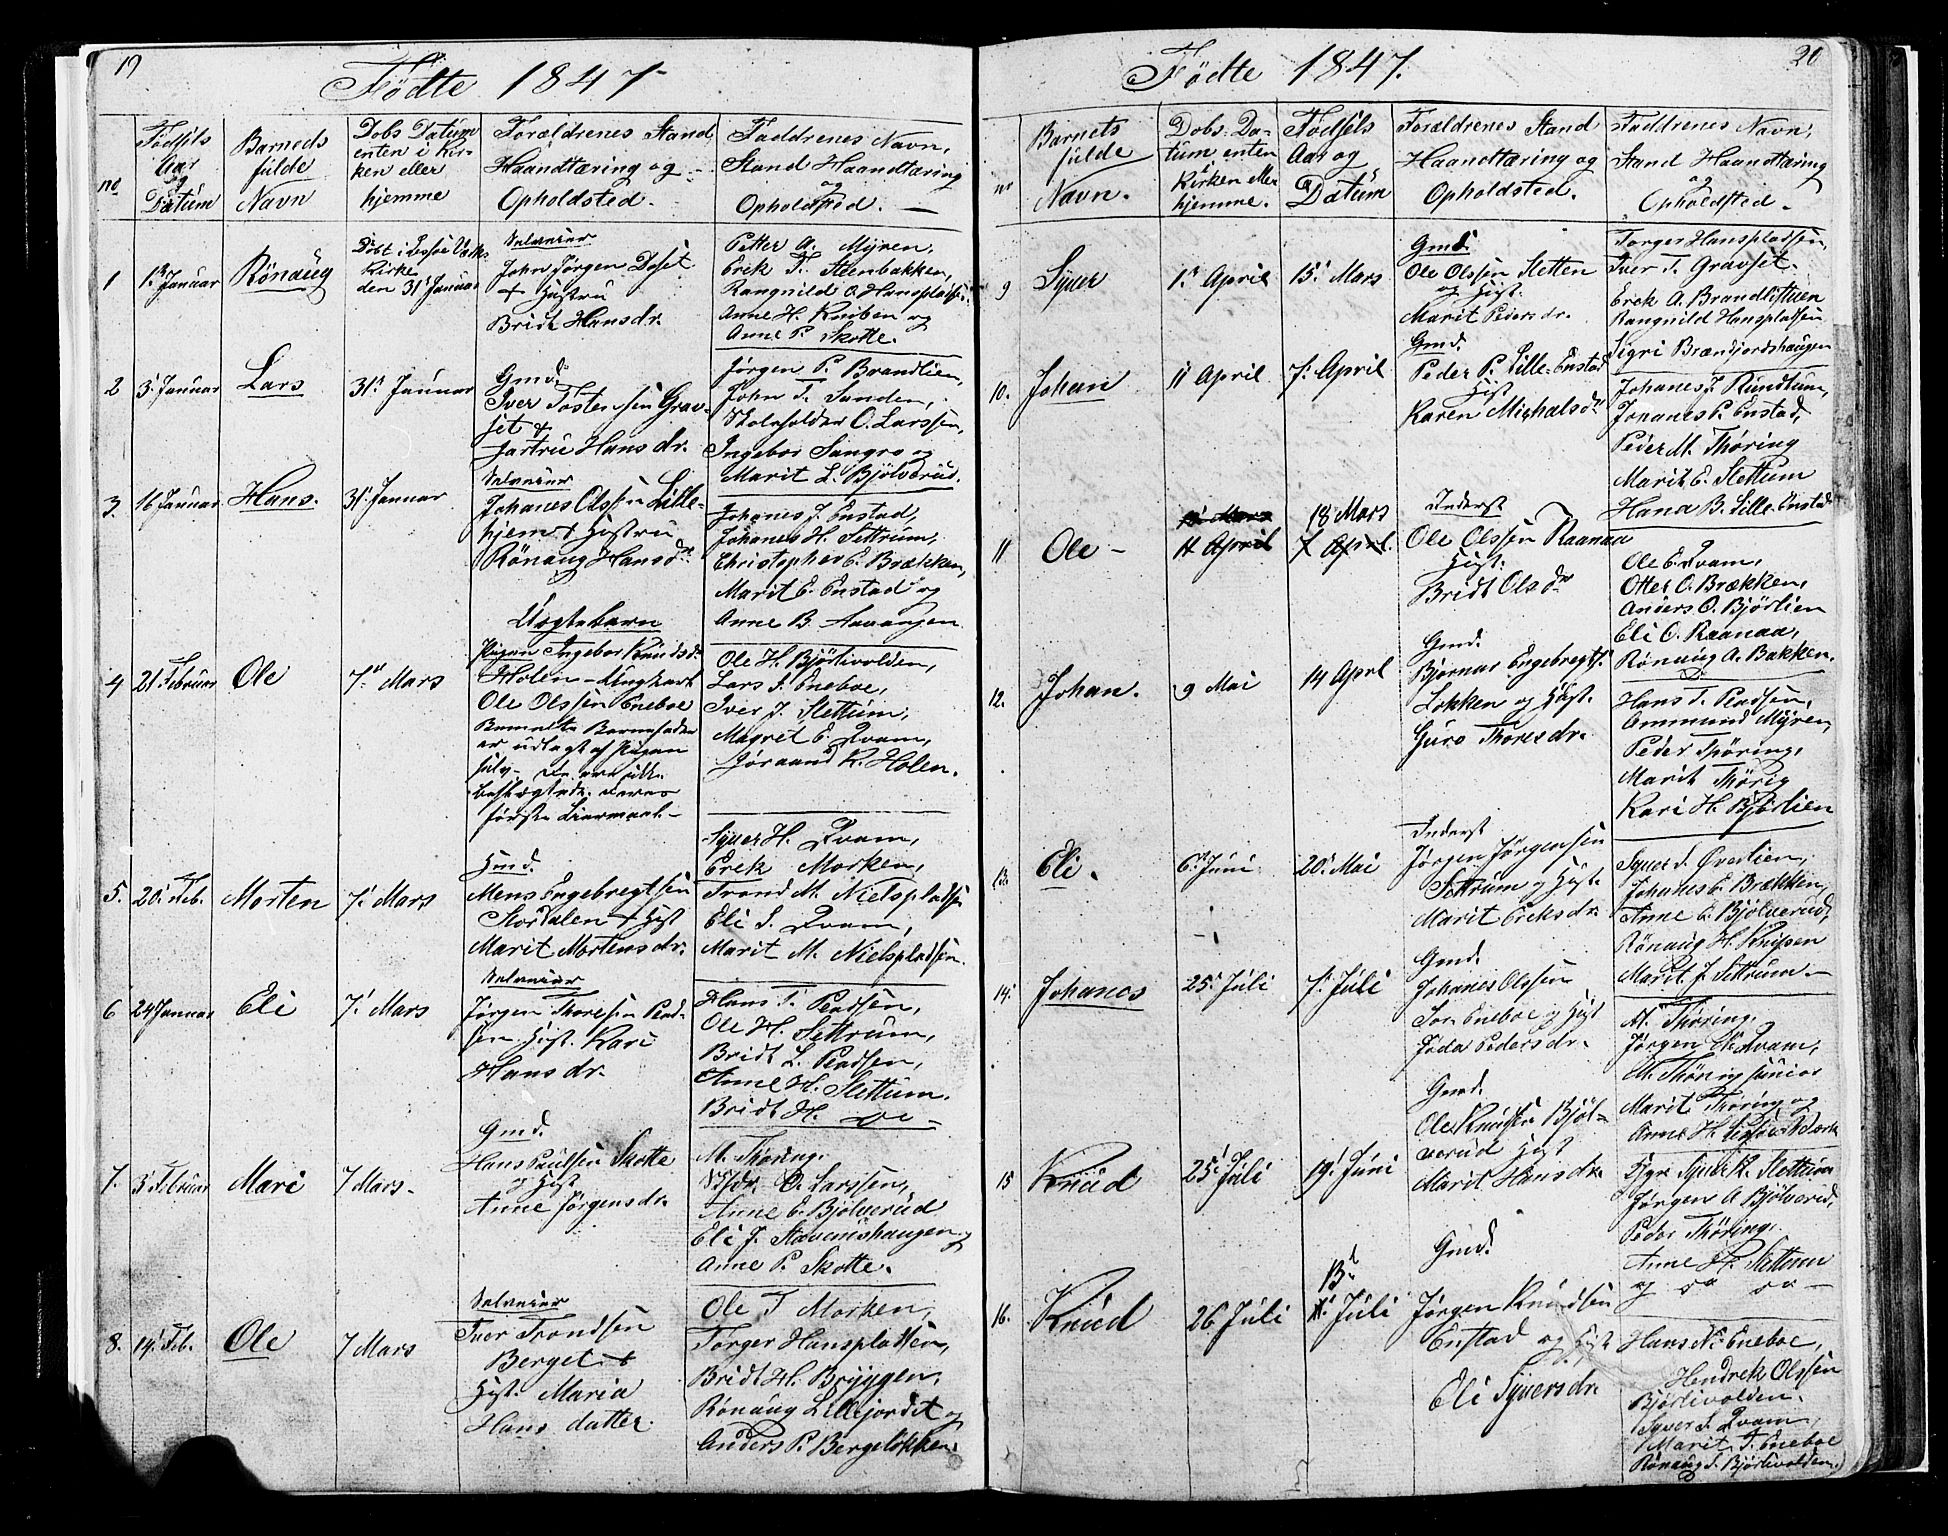 19
Fødte 1847
no
Fødsels
Aar
og
Datum
Barneds
fulde
Navn
Dobs Datum
enten i Kir-
ken eller
hjemme
Forældrenes Stand
Haandtæring og -
Opholdsted.
Faddrenes Navn,
Stand Haandtæring
og
Opholdsted. —
1
1ste Januar
Rønaug
Døbt i
Kirke
den 31 Januar
Selveier
John Jørgen Doset
+ Hustru
Bridt Hansdr.
Petter A. Myren,
Erek T. Steenbakken,
Rangnild O. Hanspladsen,
Anne H. Kniben og
Anne P. Skotte.
2
3 Januar
Lars
31. Januar
Gmd.
Iver Tostensen Grav-
set +
Jartru Hansdr.
Jørgen P. Brandlien,
John T. Sanden,
Skoleholder O. Larssen,
Ingebor Sangro og
Marit L. Bjölverud.
3.
16 Januar
Hans.
31. Januar
Selveier
Johanes Olssen Lille-
hjem + Hustru
Rönaug Hansdr.
Johanes J. Enstad,
Johanes H. Settrum,
Christopher E. Brækken,
Marit E. Enstad og
Anne B. Aavangen
4
21 Februar
Ole
7de Mars
Uægtebarn
Pigen Ingebor Knudsdr
Holen - Ungkarl
Ole Olssen Eneboe
Barnefader
er udlagt af Pigen
selv - De ere ikke
beslægtede. Deres
förste Leiermaal -
Ole H. Bjørlivolden,
Lars J. Eneboe,
Iver J. Slettum,
Magrit E. Qvam,
Jøraand K. Holen.
5.
20. Feb.
Morten
7. Mars
Gmd.
Mens Engebregtsen
Stordalen + Hust
Marit Mortensdr.
Syver H. Qvam,
Erek Morken,
Trond M. Nielspladsen
Eli S. Qvam,
Marit M. Nielspladsen.
6
24 Januar
Eli
7. Mars
Selveier
Jørgen Thoresen Plad-
sen Hust. Kari
Hansdr.
Hans T. Pladsen,
Ole H. Settrum,
Bridt L. Pladsen,
Anne H. Slettum.
Bridt H. Do —
7.
3 Februar
Mari
7 Mars -
Gmd.
Hans Paulsen Skotte
og Hust
Anne Jørgensdr.
M. Thøring,
O. Larssen,
Anne E. Bjølverud
Eli J. Stavemshaugen og
Anne P. Skotte.
8.
14. Feb.
Ole
7 Mars
Selveier
Iver Trondsen
Berget +
Hust. Maria
Hans datter.
Ole T Morken,
Torger Hanspladsen,
Bridt H. Bryggen,
Rönaug Lillejordet og
Anders P. Bergeløkken.
20
Fødte 1847.
no
Barnets
fulde
Navn.
Dobs-Da-
tum enten
Kirken eller
hjemme.
Fødsels
Aar og
Datum
Forældrenes Stand
Haandtæring og
Opholdsted.
Faddrenes Navn,
Stand Haandtæring
og
Opholdsted.
9
Syver
1. April
15. Mars
Gmd.
Ole Olssen Sletten
og Hust.
Marit Pedersdr.
Torger Hanspladsen,
Iver T. Gravset.
Erek A. Brandlistuen
Rangnild Hanspladsen
Sigri Brændjordshaugen
10.
Johan
11 April
7. April
Gmd.
Peder P. Lille-Enstad
Hust
Karen Michalsdr
Johanes J. Rundtum,
Johanes P. Enstad,
Peder M. Thøring
Marit E. Slettum
Hana B. Lille-Enstad
11
Ole -
11 April
18 Mars
7 April.
Inderst
Ole Olssen Raanaa
Hust.
Bridt Olsdr
Ole E. Qvam,
Otter O. Brækken,
Anders O. Bjørlien
Eli O. Raanaa,
Rønaug A. Bakken.
12.
Johan.
9 Mai
14 Aprl
Gmd.
Bjørnar Engebregts.
Løkken og Hust.
Guro Thoresdr.
Hans T. Pladsen,
Emmund Myren,
Peder Thöring,
Marit Thørig
Kari H. Bjørlien
13.
Eli.
6. Juni
20. Mai
Inderst
Jørgen Jörgensen
Settrum og Hust.
Marit Ereksdr.
Syver J. Øverlien,
Johanes E. Brækken,
Anne E. Bjölverud,
Rönaug H. Knipen
Marit J. Settrum -
14.
Johanes
25. Juli
7. Juli
Gmd.
Johanes Olssen
Eneboe og Hust
Pedersdr.
M. Thøring,
Jørgen E. Qvam,
M. Thøring junior
Marit Thøring og
Anne H. Lesjoe Værk
15
Knud
25. Juli
19. Juni
Gmd.
Ole Knudsen Bjöl-
verud Hust
Marit Hansdr.
Syver K. Slettum
Jørgen A. Bjølverud,
Peder Thøring,
Anne H. Settrum
og do do -
16.
Knud
26 Juli
13de
Juli
Gmd.
Jørgen Knudsen
Enstad og Hust
Eli Syversdr.
Hans N. Eneboe,
Hendrek Olssen
Bjørlivolden.
Syver S. Qvam,
Marit T. Eneboe
Rönaug S. Bjørlivolden.